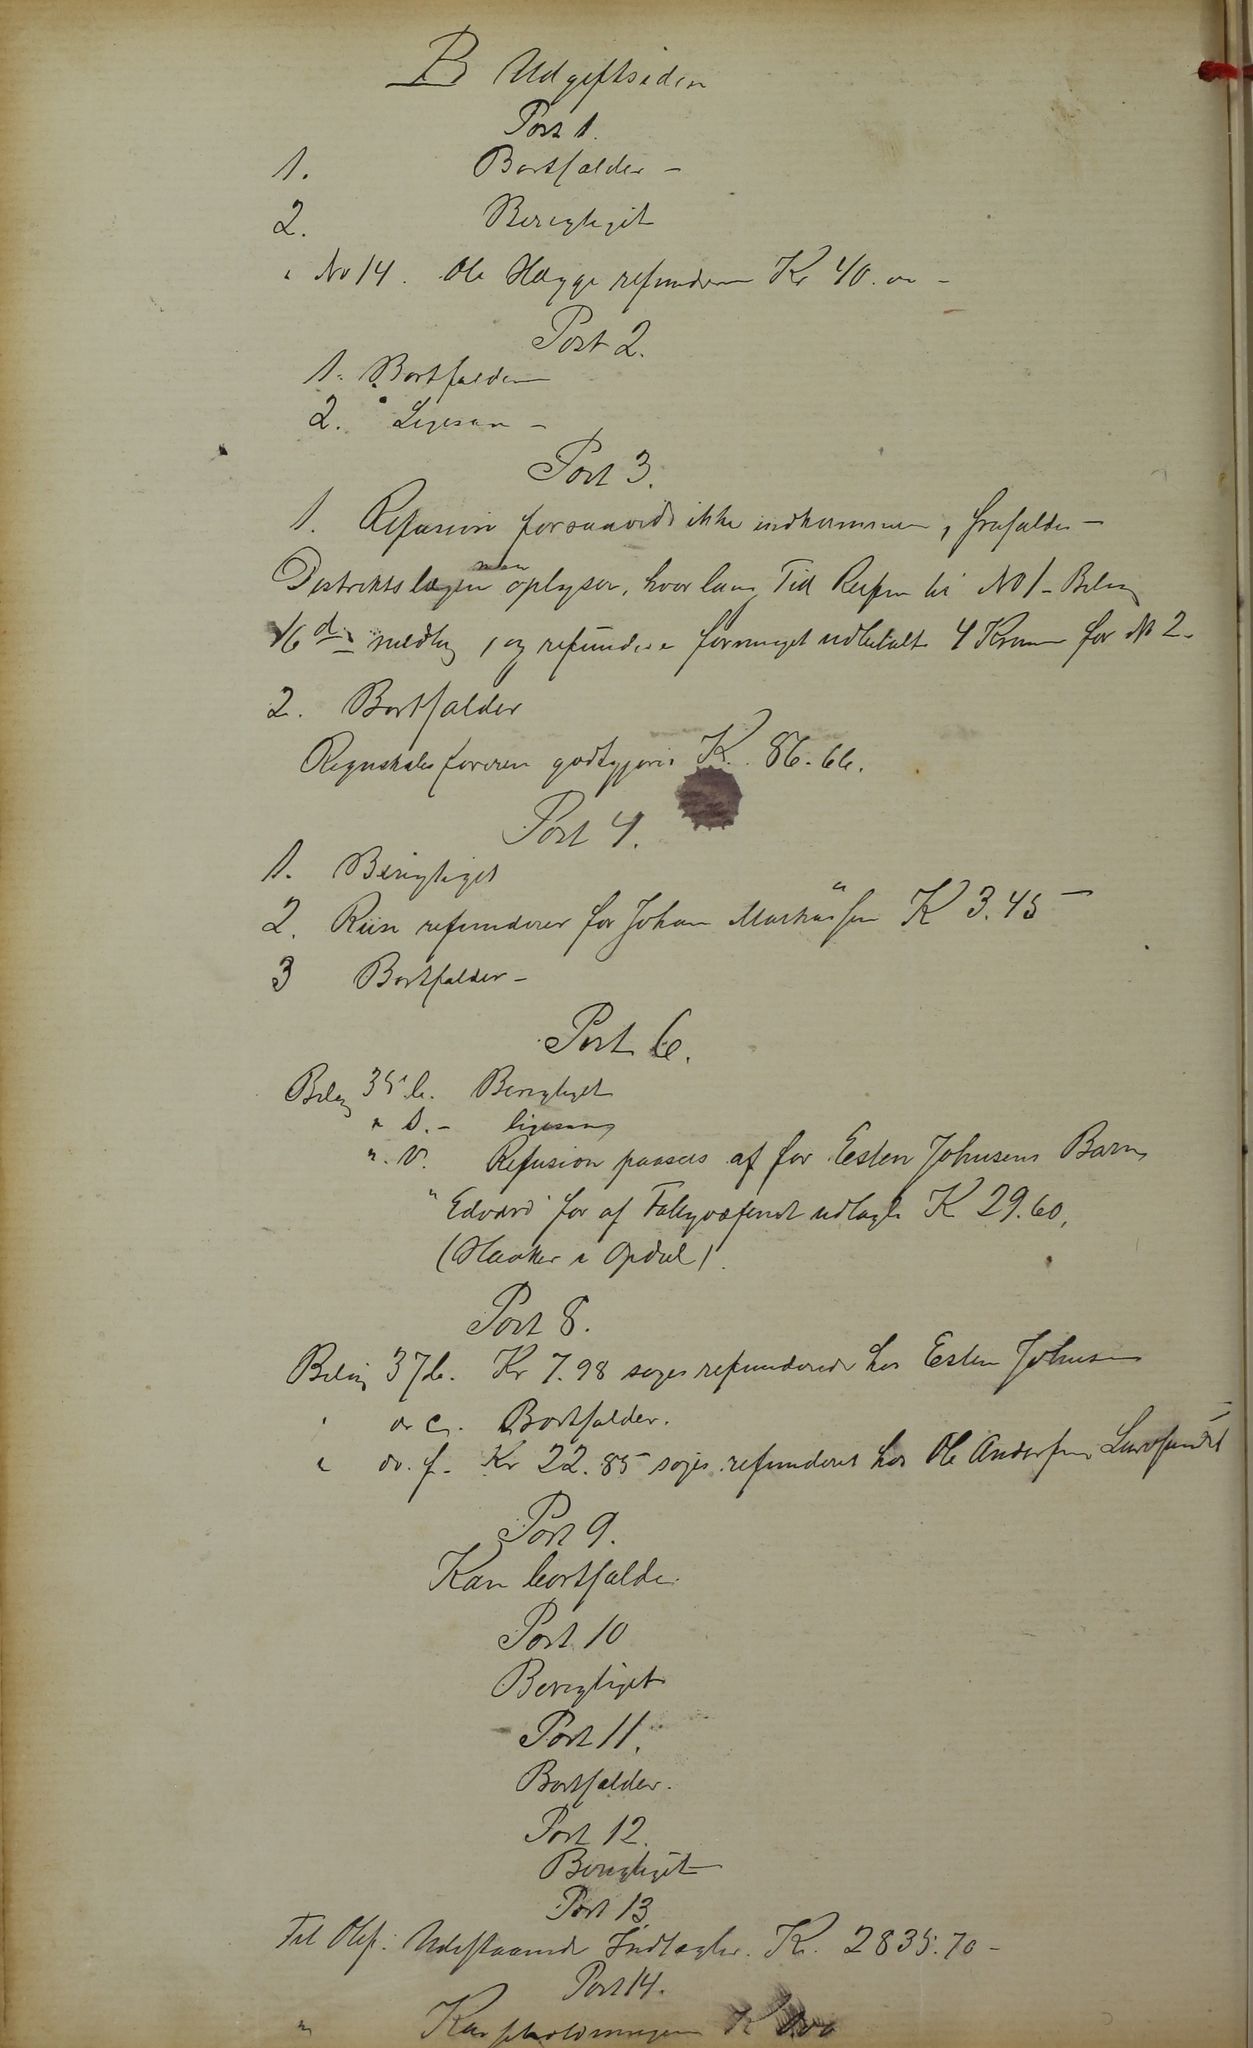 B Udgiftsiden
Post 1.
1. Bortfalder -
2. Berigtiget
" No 14. Ole Hægge refunderer Kr 40.00 -
Post 2.
1. Bortfalder
2. Ligesaa -
Post 3.
1. Refusion forsaavidt ikke indkommen, frafaldes -
Distriktslægen man oplyser, hvor lang Tid Reisen til No 1 - Bilag
16 d medtog, og refunderer formeget udbetalt 4 Kroner for No 2.
2. Bortfalder
Regnskabsføreren godtgjøres K. 86.66.
Post 4.
1. Berigtiget
2. Riise refunderer for Johan Markussen K 3.45 -
3 Bortfalder -
Post 6.
Bilag 35 b. Berigtiget
" s. - ligesaa
" v. Refusion paasees af for Esten Johnsens Barn
"Edvard" for af Fattigvæsenet udlagte K 29.60,
(Haaker i Opdal).
Post 8.
Bilag 37 b. Kr 7.98 søges refunderede hos Esten Johnsen
" " c. Bortfalder.
" " f. Kr 22.85 søges refunderet hos Ole Andersen
Post 9.
Kan bortfalde.
Post 10
Berigtiget
Post 11.
Bortfalder.
Post 12.
Berigtiget
Post 13
Til Obs: Udestaaende Indtægter Kr. 2835.70 -
Post 14.
" Kassebeholdningen K